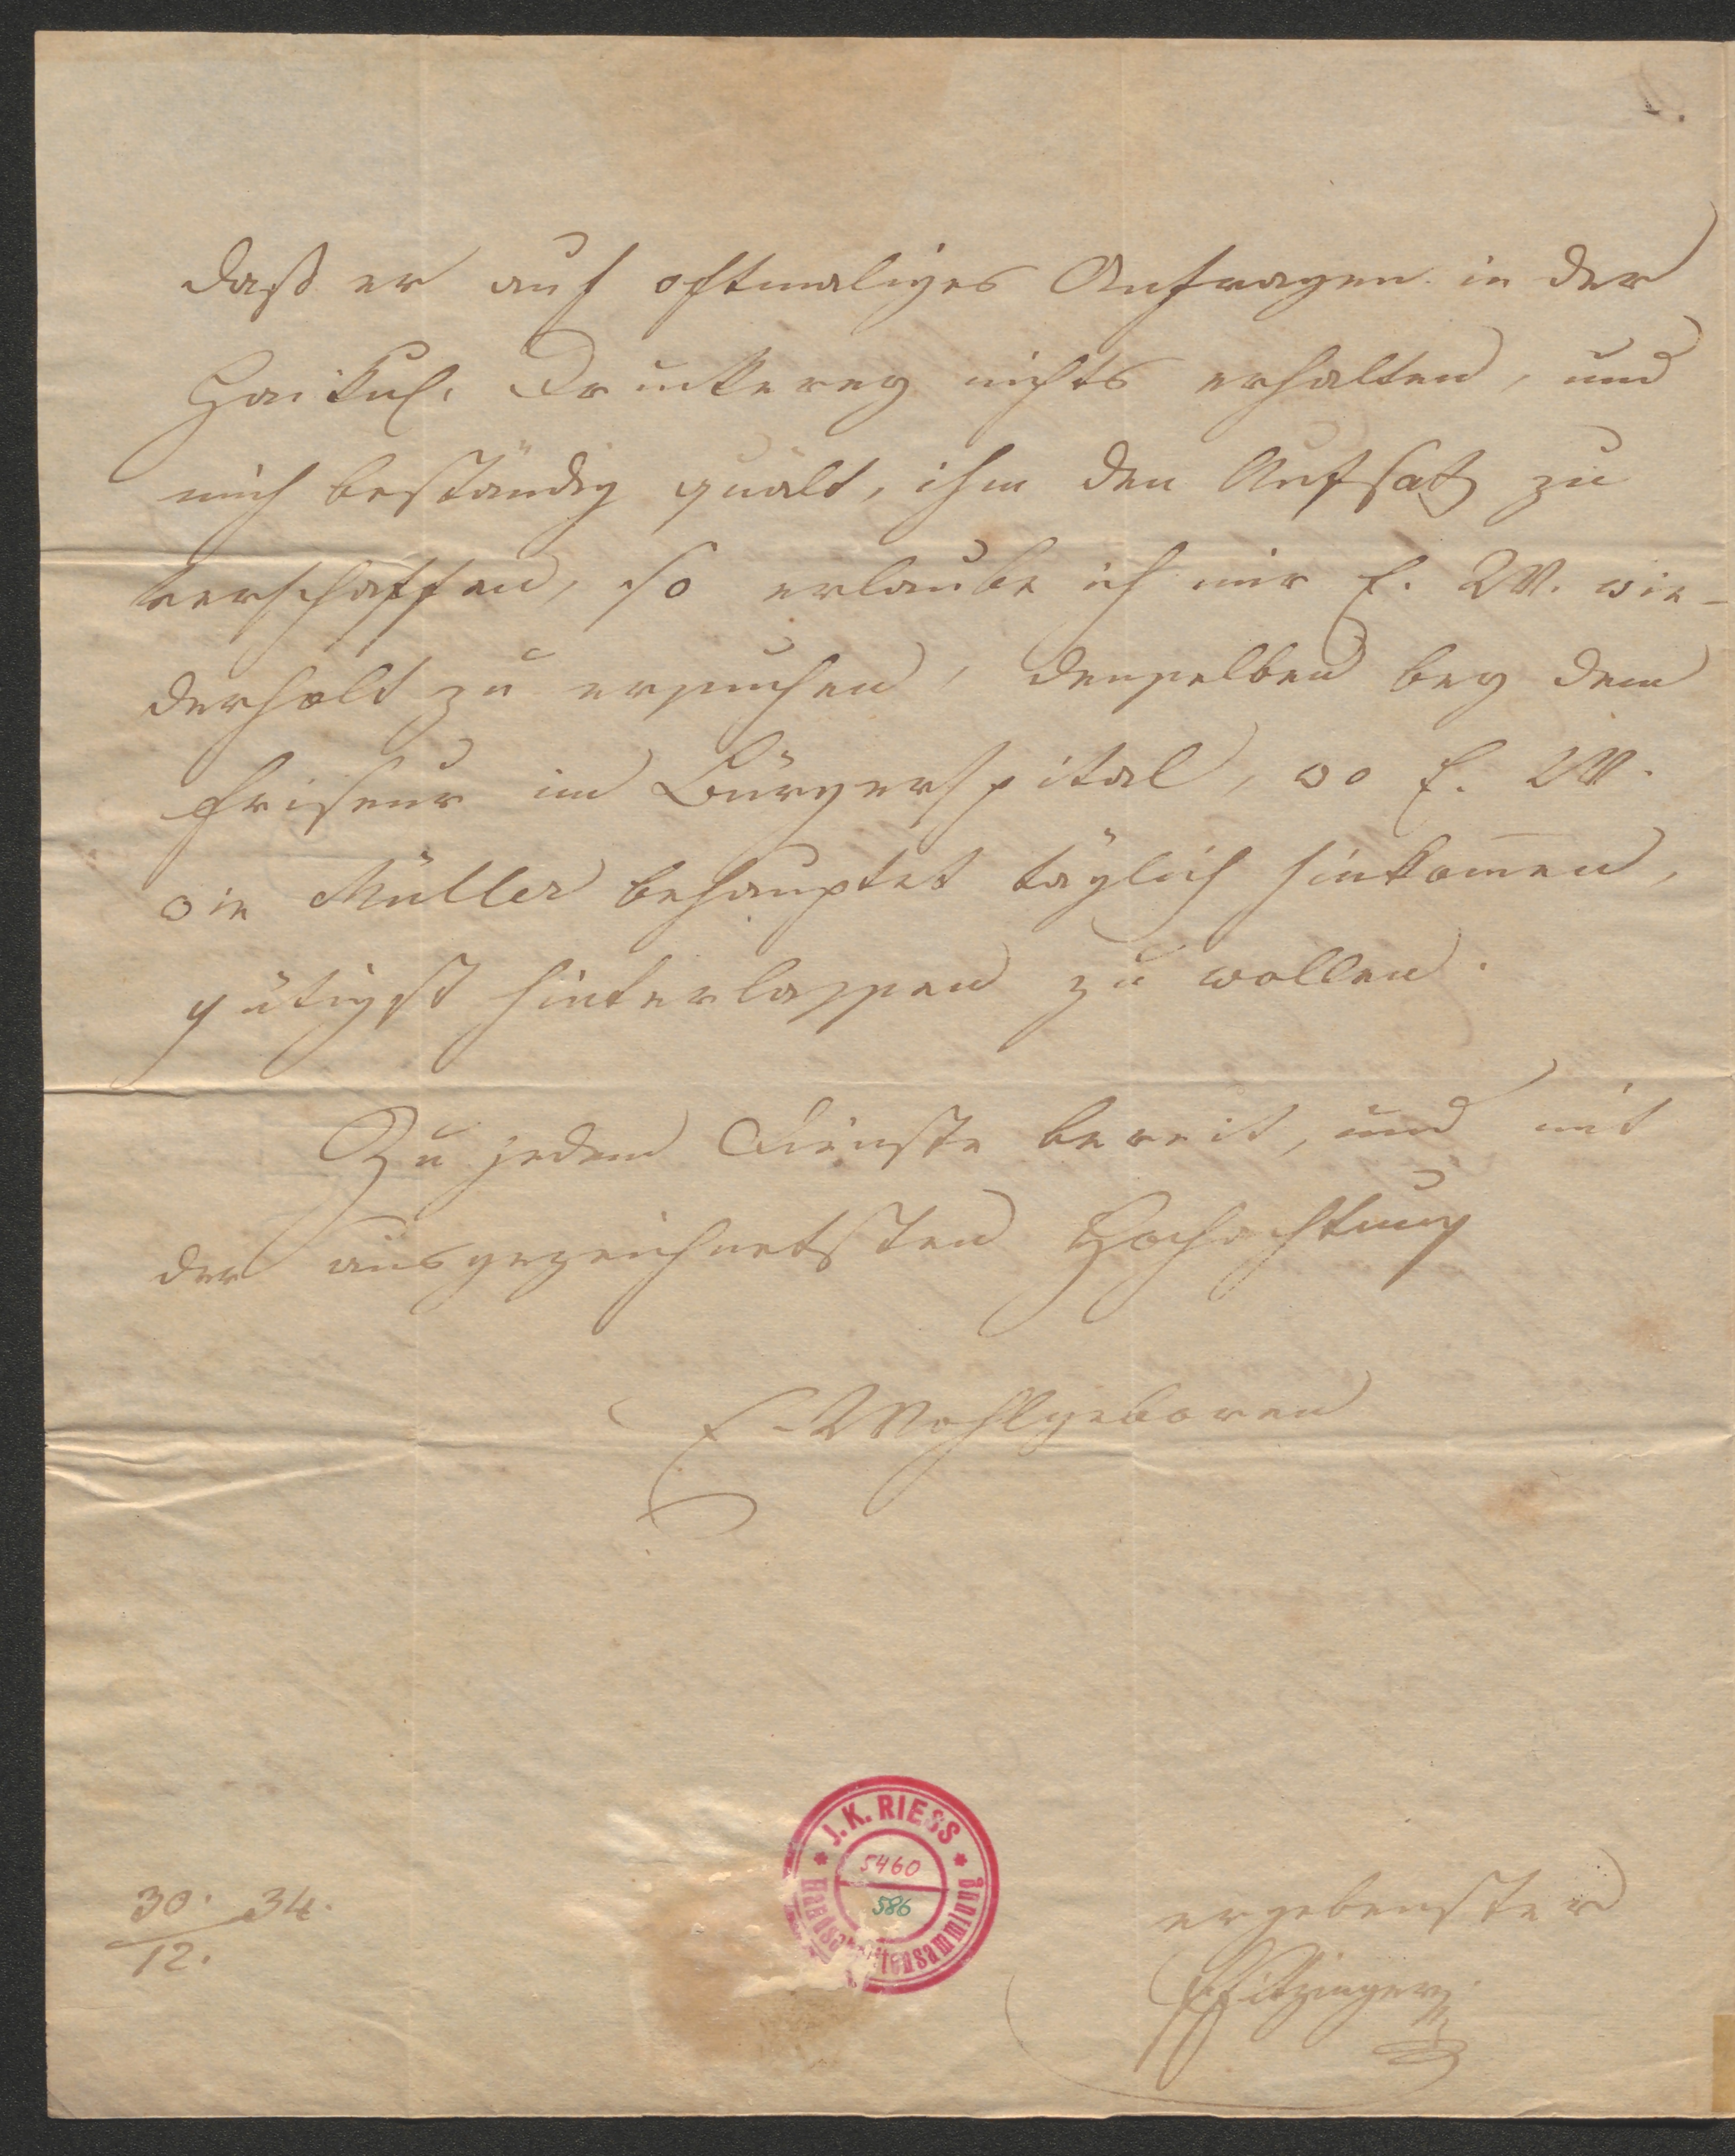 daß er auf oftmaliges Anfragen in der
Haikul. Druckerey nichts erhalten, und
mich beständig quält, ihm den Aufsatz zu
verschaffen, so erlaube ich mir E. W. wie-
derholt zu ersuchen, denselben bey dem
Friseur im Bürgerspital, wo E. W.
wie Müller behauptet täglich hinkom̅en,
gütigst hinterlassen zu wollen.
Zu jedem Dienste bereit, und mit
der ausgezeichnetsten Hochachtung
E. Wohlgeboren
30. 34.
12.
J. K. RIESS
5460
586
Handschriftensammlung
ergebenster
Fitzinger